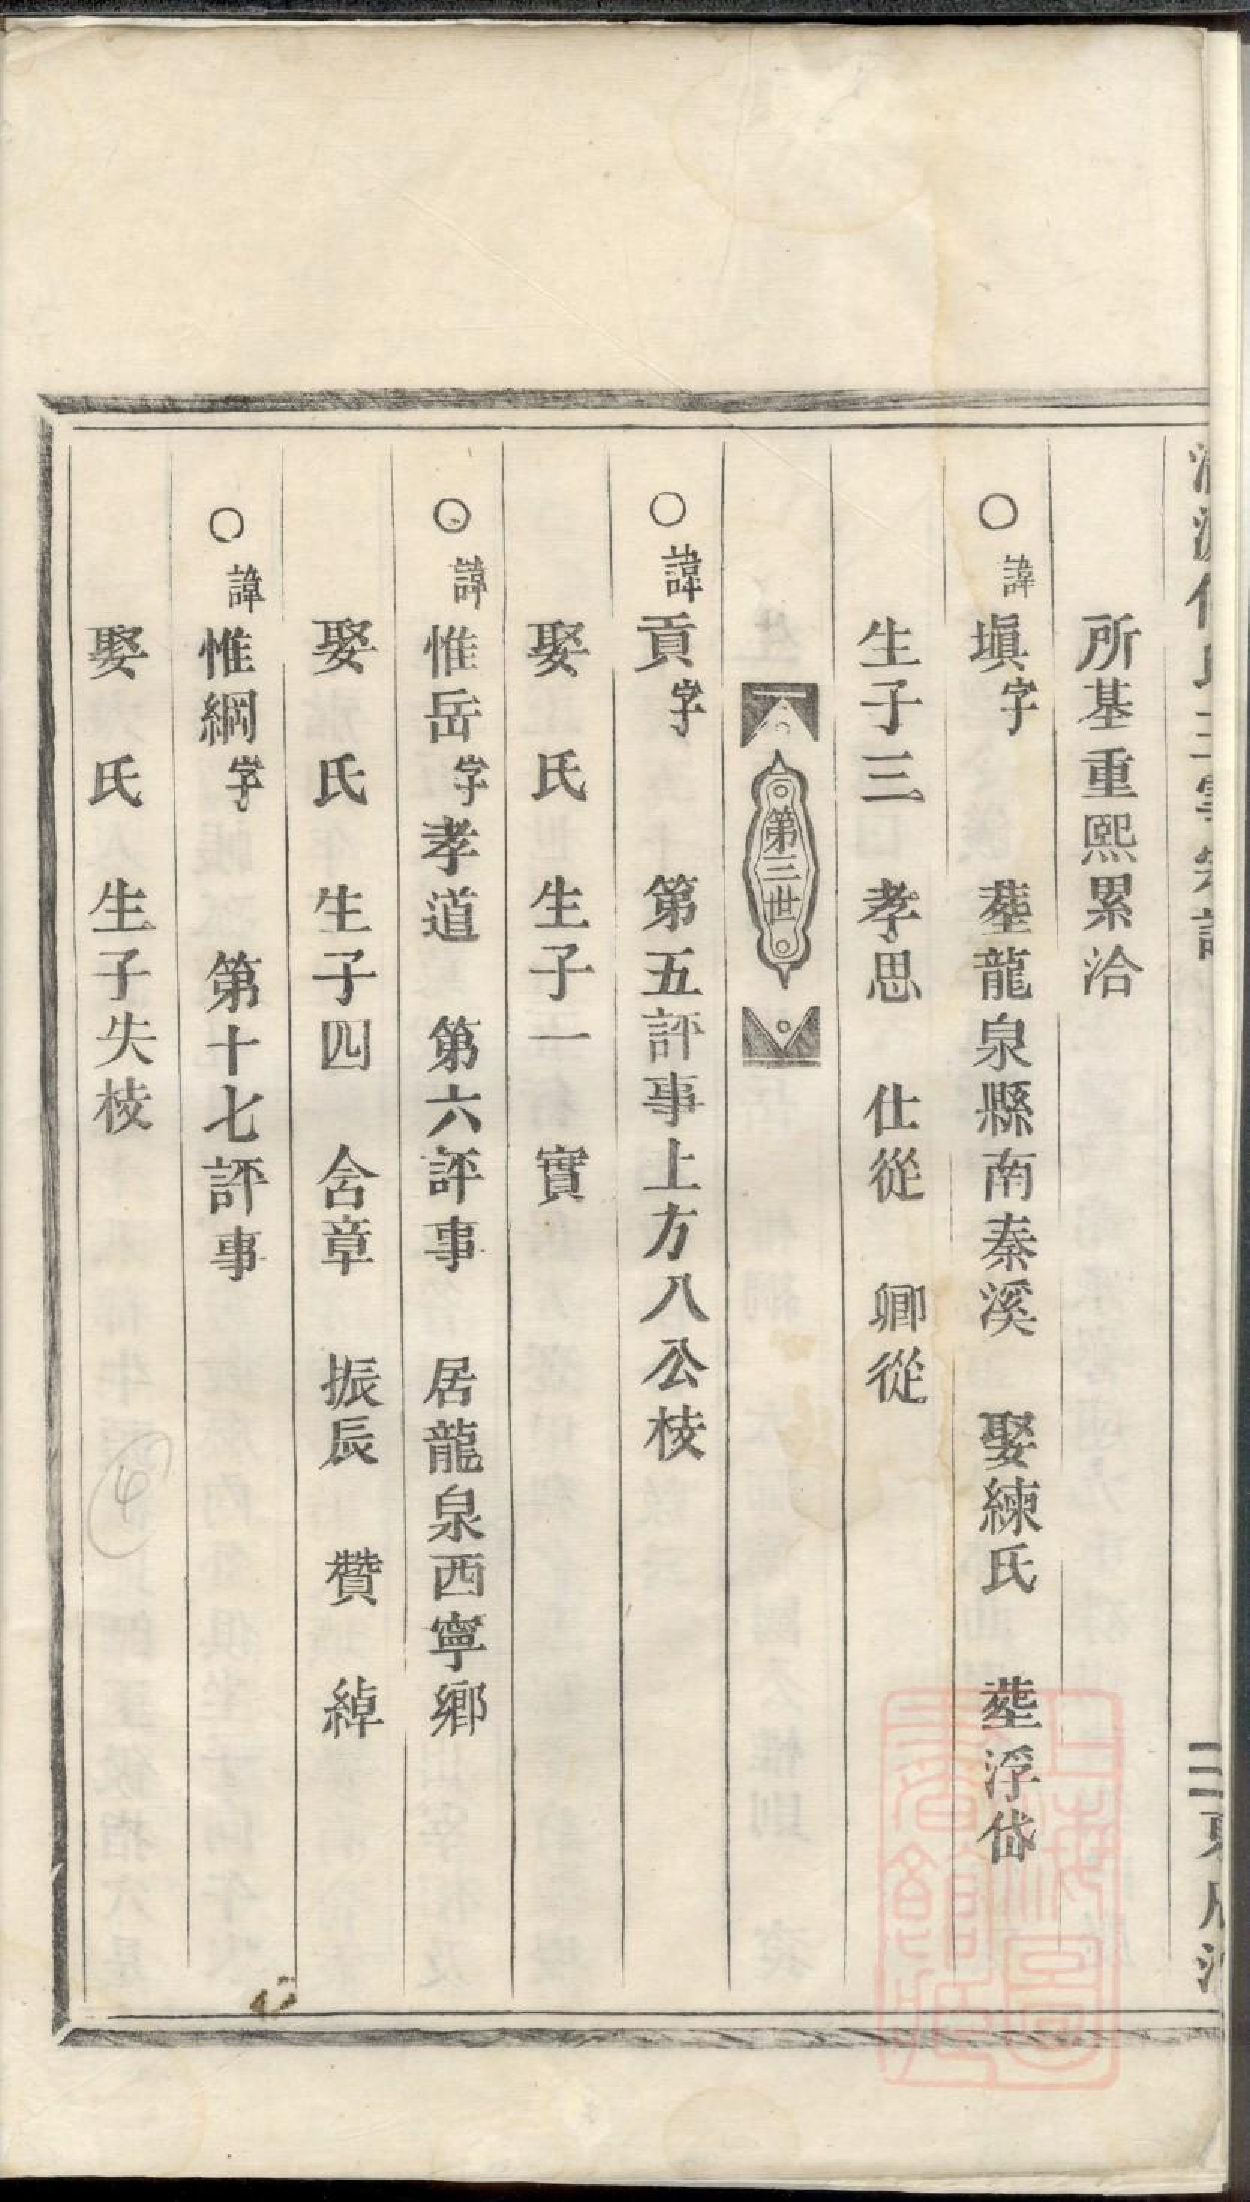 所基重熙累洽
○諱塡字 塟龍泉縣南秦溪 娶練氏 塟浮岱
生子三 孝思 仕從 卿從
第三世
○諱貢字 第五評事上方八公枝
娶 氏 生子一 實
○諱惟岳字孝道 第六評事 居龍泉西寧鄉
娶 氏 生子四 含章 振辰 贊 綽
○諱惟綱字 第十七評事
娶 氏 生子失枝